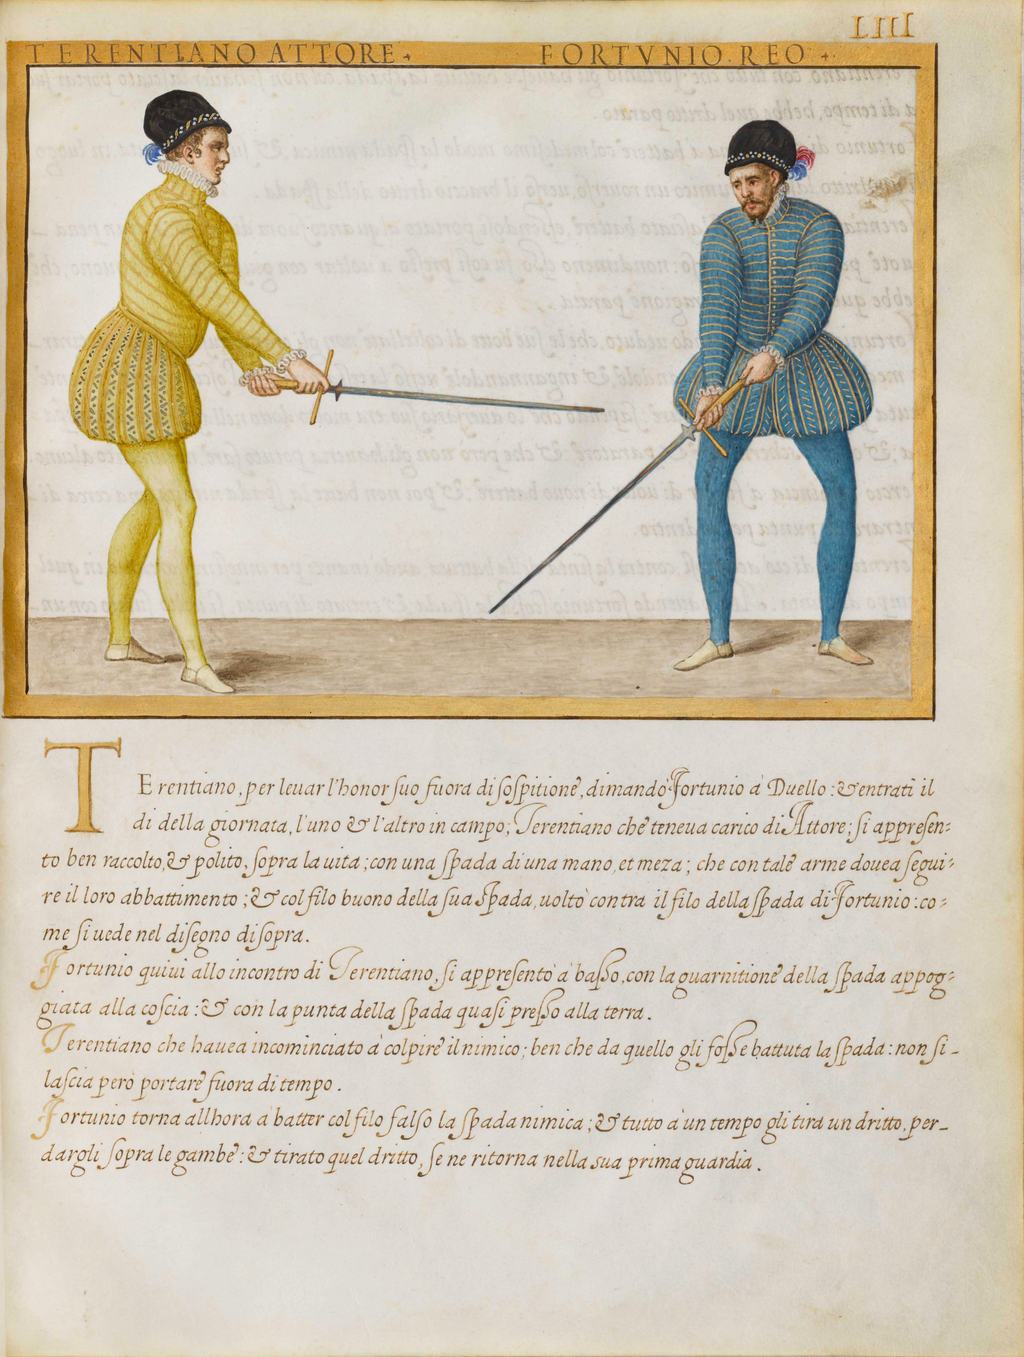 LIII
TERENTIANO ATTORE. FORTVNIO. REO.
TErentiano, per leuar l'honor suo fuora di sospitione, dimandò Fortunio à Duello: & entrati il
dì della giornata, l'uno & l'altro in campo; Terentiano che teneua carico di Attore; si appresen=
tò ben raccolto, & polito, sopra la uita; con una spada di una mano, et meza; che con tale arme douea segui=
re il loro abbattimento; & col filo buono della sua spada, uoltò contra il filo della spada di Fortunio: co=
me si uede nel disegno di sopra.
Fortunio quiui allo incontro di Terentiano, si appresentò à basso, con la guarnitione della spada appog=
giata alla coscia: & con la punta della spada quasi presso alla terra.
Terentiano che hauea incominciato à colpire il nimico; ben che da quello gli fosse battuta la spada: non si_
lascia però portare fuora di tempo.
Fortunio torna allhora à batter col filo falso la spada nimica; & tutto à un tempo gli tira un dritto, per_
dargli sopra le gambe: & tirato quel dritto, se ne ritorna nella sua prima guardia.